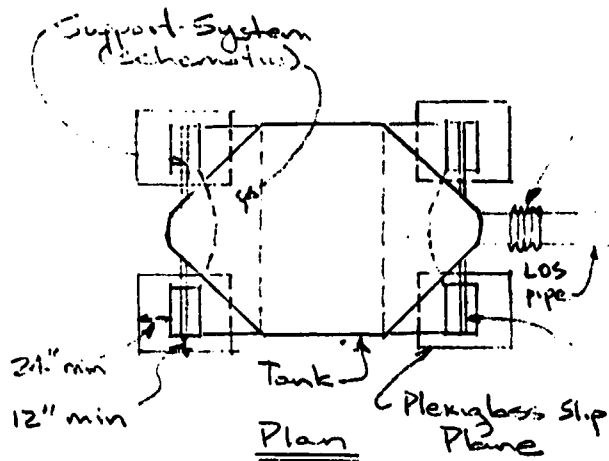 Support System
(Schematic)
LOS
pipe
24" min
12" min
Tank
Plexiglass Slip
Plane
Plan